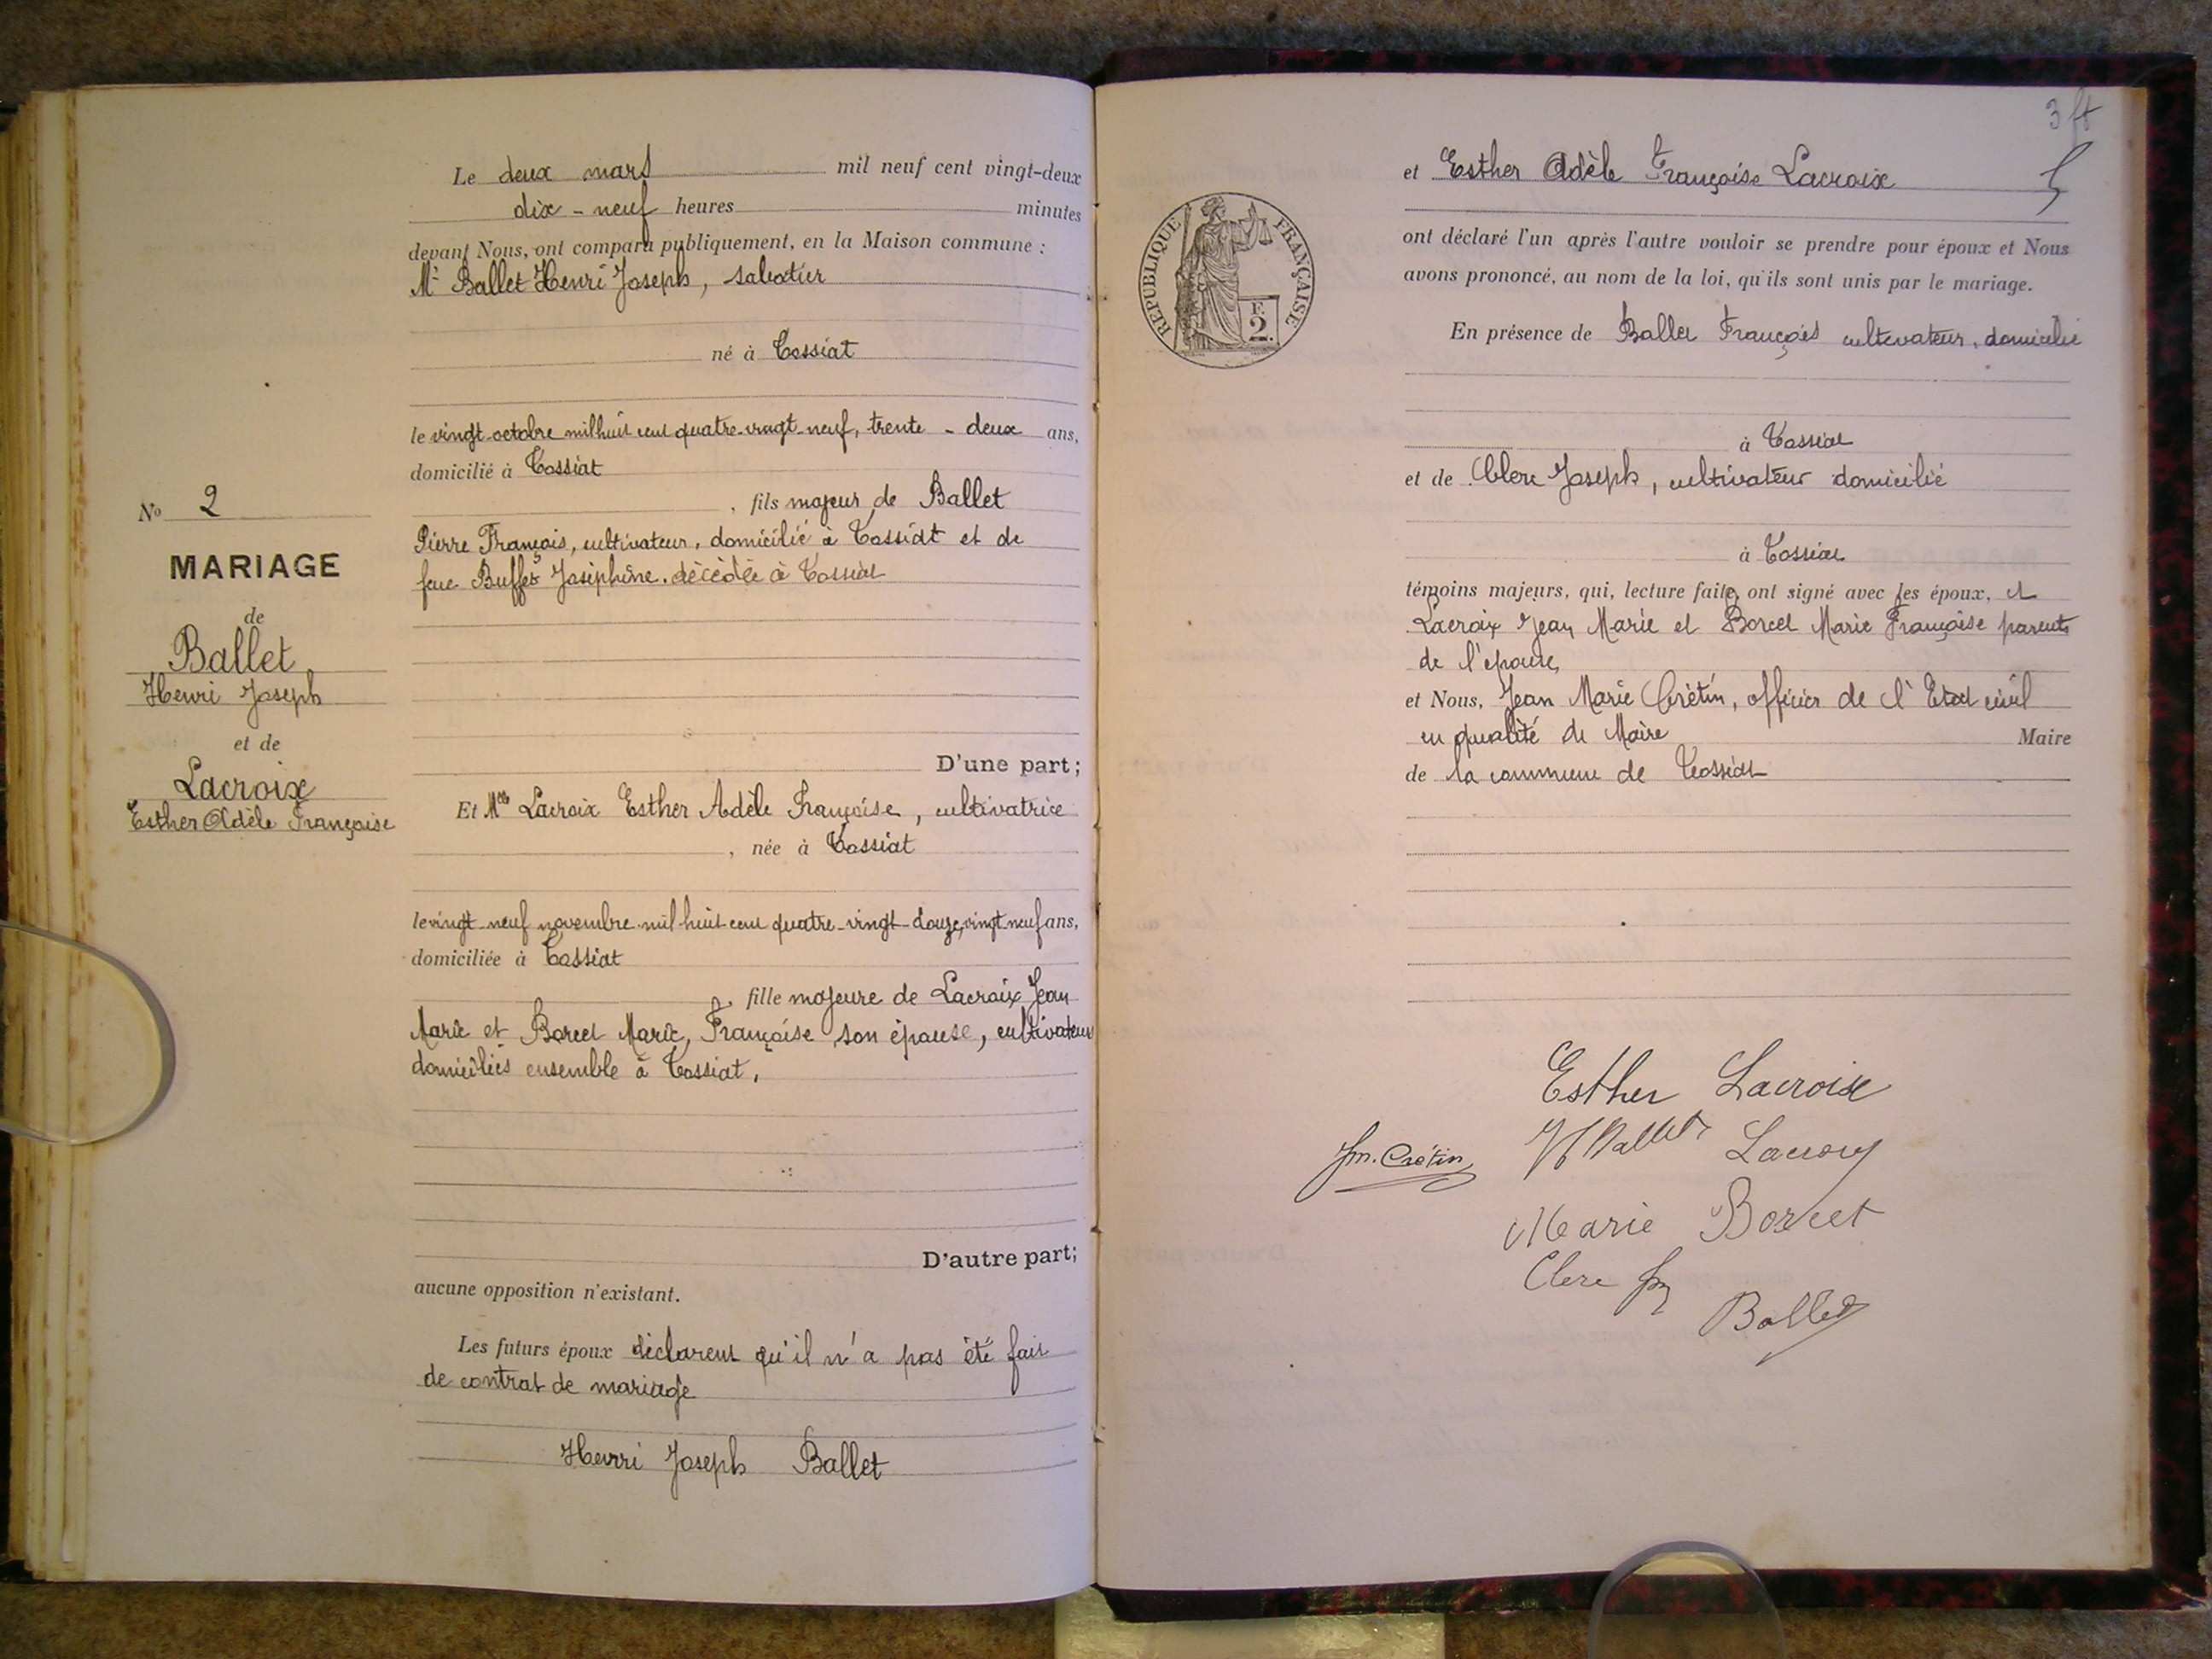 Le deux mars mil neuf cent vingt-deux
dix-neuf heures minutes
devant Nous, ont comparu publiquement, en la Maison commune :
Mr Ballet Henri Joseph, sabotier
né à Tossiat
le vingt octobre mil huit cent quatre-vingt-neuf, trente-deux ans,
domicilié à Tossiat
, fils majeur de Ballet
Pierre François, cultivateur, domicilié à Tossiat et de
feue Buffet Joséphine, décédée à Tossiat
D'une part;
Et Mlle Lacroix Esther Adèle Françoise, cultivatrice
, née à Tossiat
le vingt-neuf novembre mil huit cent quatre-vingt-douze, vingt neuf ans,
domiciliée à Tossiat
, fille majeure de Lacroix Jean
Marie et Borcet Marie, Françoise son épouse, cultivateurs
domiciliés ensemble à Tossiat,
D'autre part;
aucune opposition n'existant.
Les futurs époux déclarent qu'il n'a pas été fait
de contrat de mariage
Henri Joseph Ballet
No 2
MARIAGE
de
Ballet
Henri Joseph
et de
Lacroix
Esther Adèle Françoise
3
et Esther Adèle Françoise Lacroix
ont déclaré l'un après l'autre vouloir se prendre pour époux et Nous
avons prononcé, au nom de la loi, qu'ils sont unis par le mariage.
En présence de Ballet François cultivateur, domicilié
à Tossiat
et de Clerc Joseph, cultivateur domicilié
à Tossiat
témoins majeurs, qui, lecture faite, ont signé avec les époux, et
Lacroix Jean Marie et Borcet Marie Françoise parents
de l'épouse,
et Nous, Jean Marie Crétin, officier de l'Etat civil
en qualité de Maire Maire
de la commune de Tossiat
RÉPUBLIQUE FRANÇAISE
F.
2.
Esther Lacroix
H Ballet Lacroix
Jm. Crétin
Marie Borcet
Clerc
Ballet